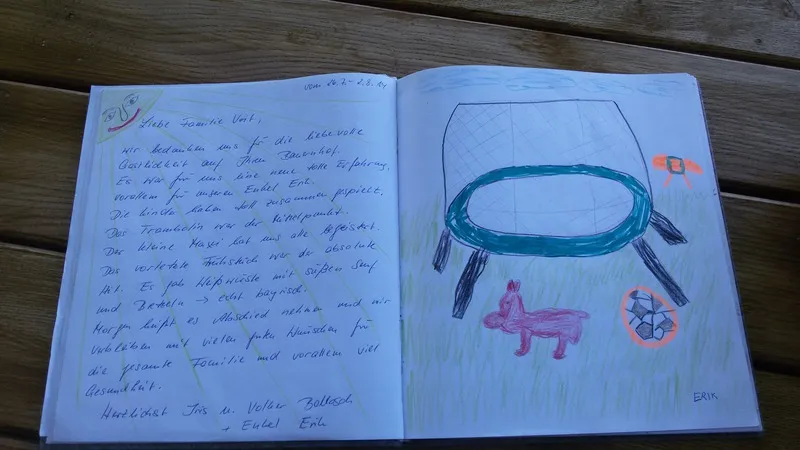 vom 26.7.- 2.8.14
Liebe Familie Voit,
wir bedanken uns für die liebevolle
Gastlichkeit auf Ihrem Bauernhof.
Es war für uns eine neue tolle Erfahrung,
vorallem für unseren Enkel Erik.
Die Kinder haben toll zusammen gespielt.
Das Trampolin war der Mittelpunkt.
Der kleine hat uns alle begeistert.
Das vorletzte Frühstück war der absolute
Hit. Es gab Weißwürste mit süßen Senf
und Brezeln → echt bayrisch.
Morgen heißt es Abschied nehmen und wir
verbleiben mit vielen guten Wünschen für
die gesamte Familie und vorallem viel
Gesundheit.
Herzlichst Iris u. Volker
+ Enkel Erik
ERIK